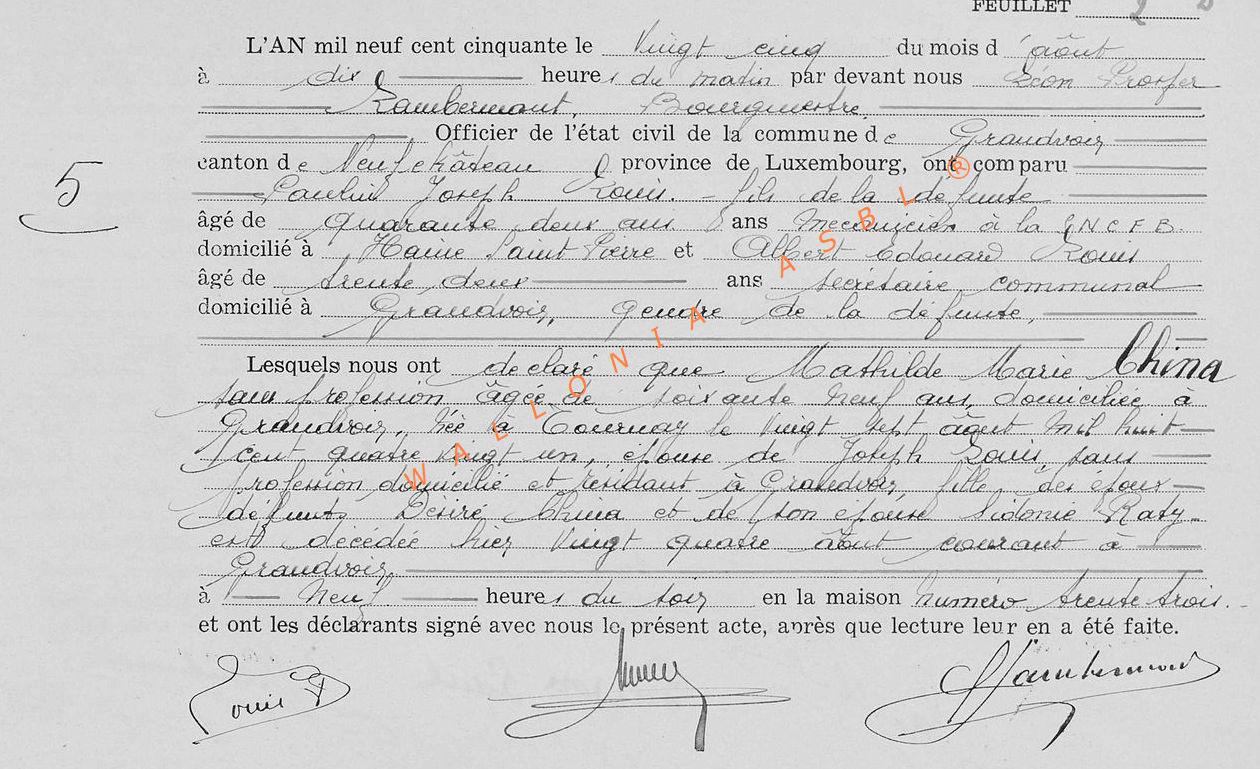 FEUILLET
L'AN mil neuf cent cinquante le Vingt cinq du mois d'août
à dix heures du matin par devant nous Léon Prosper
Lambermont, Bourgmestre,
Officier de l'état civil de la commune de Grandvoir
canton de Neufchâteau province de Luxembourg, ont comparu
5
Paulin Joseph Louis. - fils de la défunte
âgé de quarante deux ans ans mecanicien à la SNCFB.
domicilié à Haine Saint Pierre et Albert Edouard Louis
âgé de trente deux ans secrétaire communal
domicilié à Grandvoir, gendre de la défunte,
Lesquels nous ont declaré que Mathilde Marie China
sans profession âgée de soixante neuf ans, domiciliée à
Grandvoir, née à Tournay le Vingt sept août mil huit
cent quatre vingt un, épouse de Joseph Louis, sans
profession domicilié et résidant à Grandvoir, fille des époux
défunts Désiré China et de son épouse Sidonie Raty
est décédée hier Vingt quatre août courant à
Grandvoir,
à Neuf heures du soir en la maison numéro trente trois.
et ont les déclarants signé avec nous le présent acte, après que lecture leur en a été faite.
Louis Lambermont
WALLONIA ASBL ®